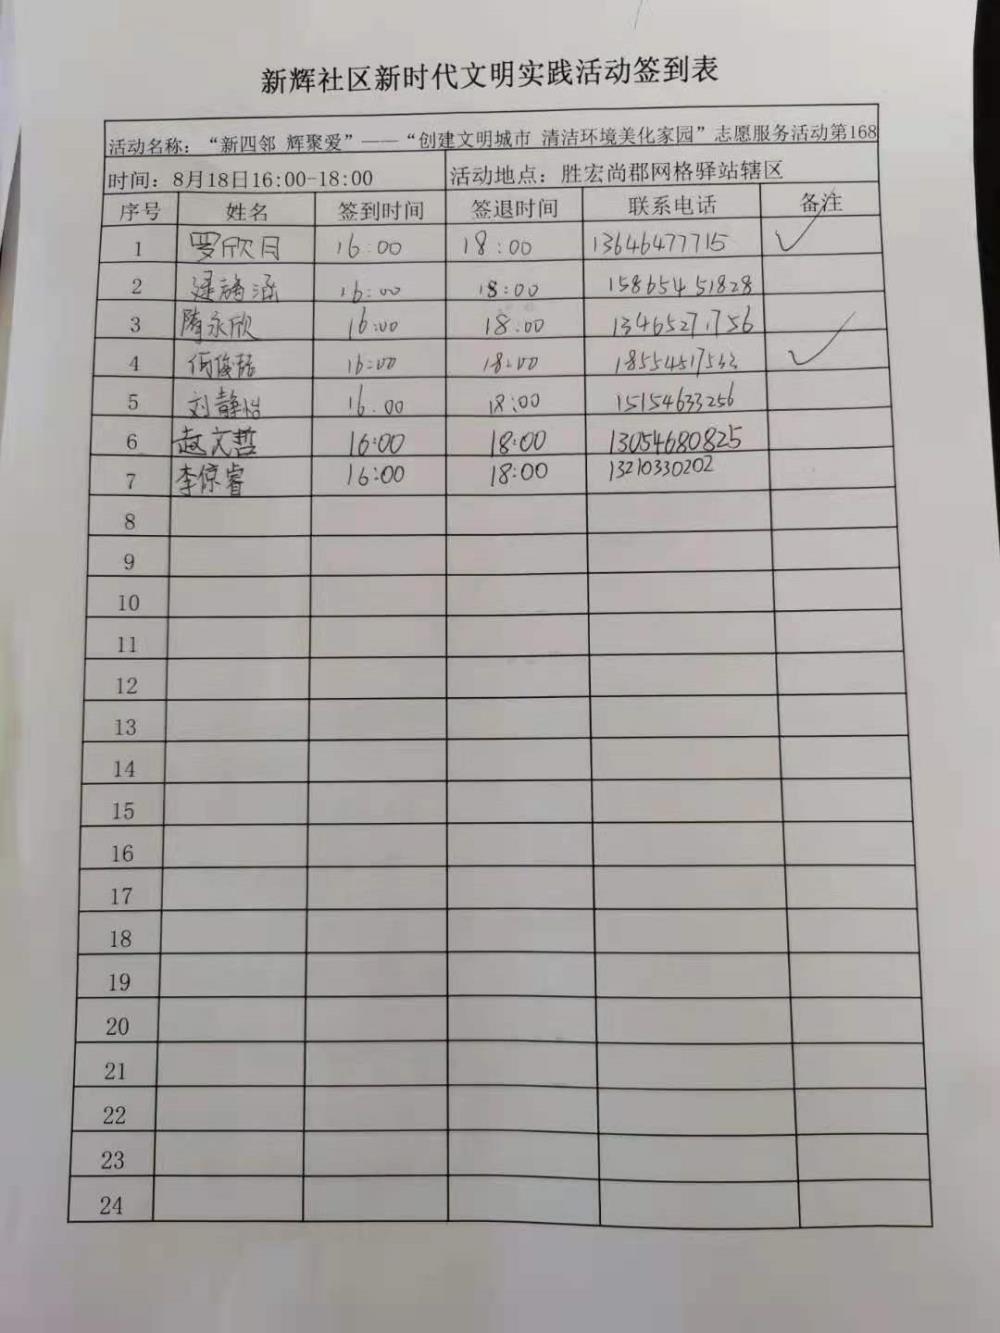 新辉社区新时代文明实践活动签到表
活动名称：“新四邻 辉聚爱”——“创建文明城市 清洁环境美化家园”志愿服务活动第168
时间：8月18日16:00-18:00 活动地点：胜宏尚郡网格驿站辖区
序号 姓名 签到时间 签退时间 联系电话 备注
1 罗欣月 16:00 18:00 13646477715 ✓
2 16:00 18:00 15865451828
3 隋永欣 16:00 18:00
4 16:00 18:00 ✓
5 刘静怡 16.00 18:00 15154633256
6 赵文哲 16:00 18:00 13054680825
7 李倞睿 16:00 18:00 13210330202
8
9
10
11
12
13
14
15
16
17
18
19
20
21
22
23
24